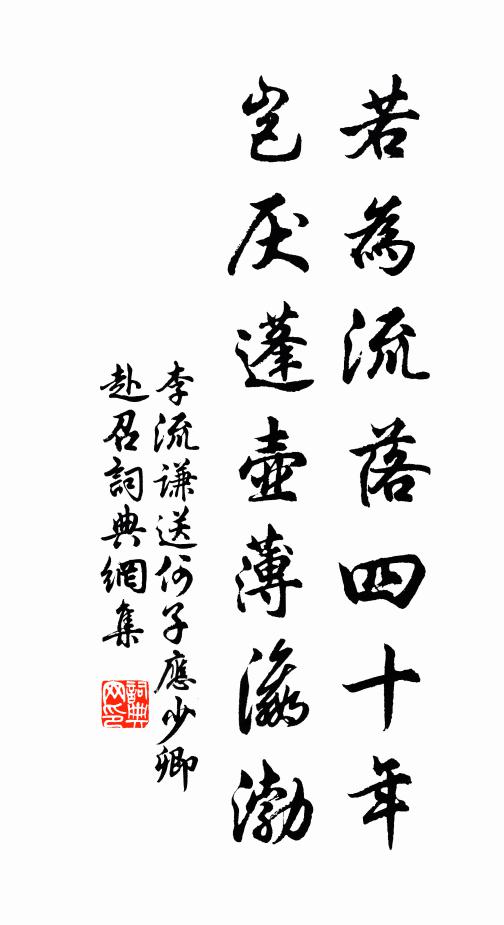 若為流落四十年
豈厭蓬壺薄瀛渤
李流謙送何子應少卿
赴召詞典網集
詞典
网印